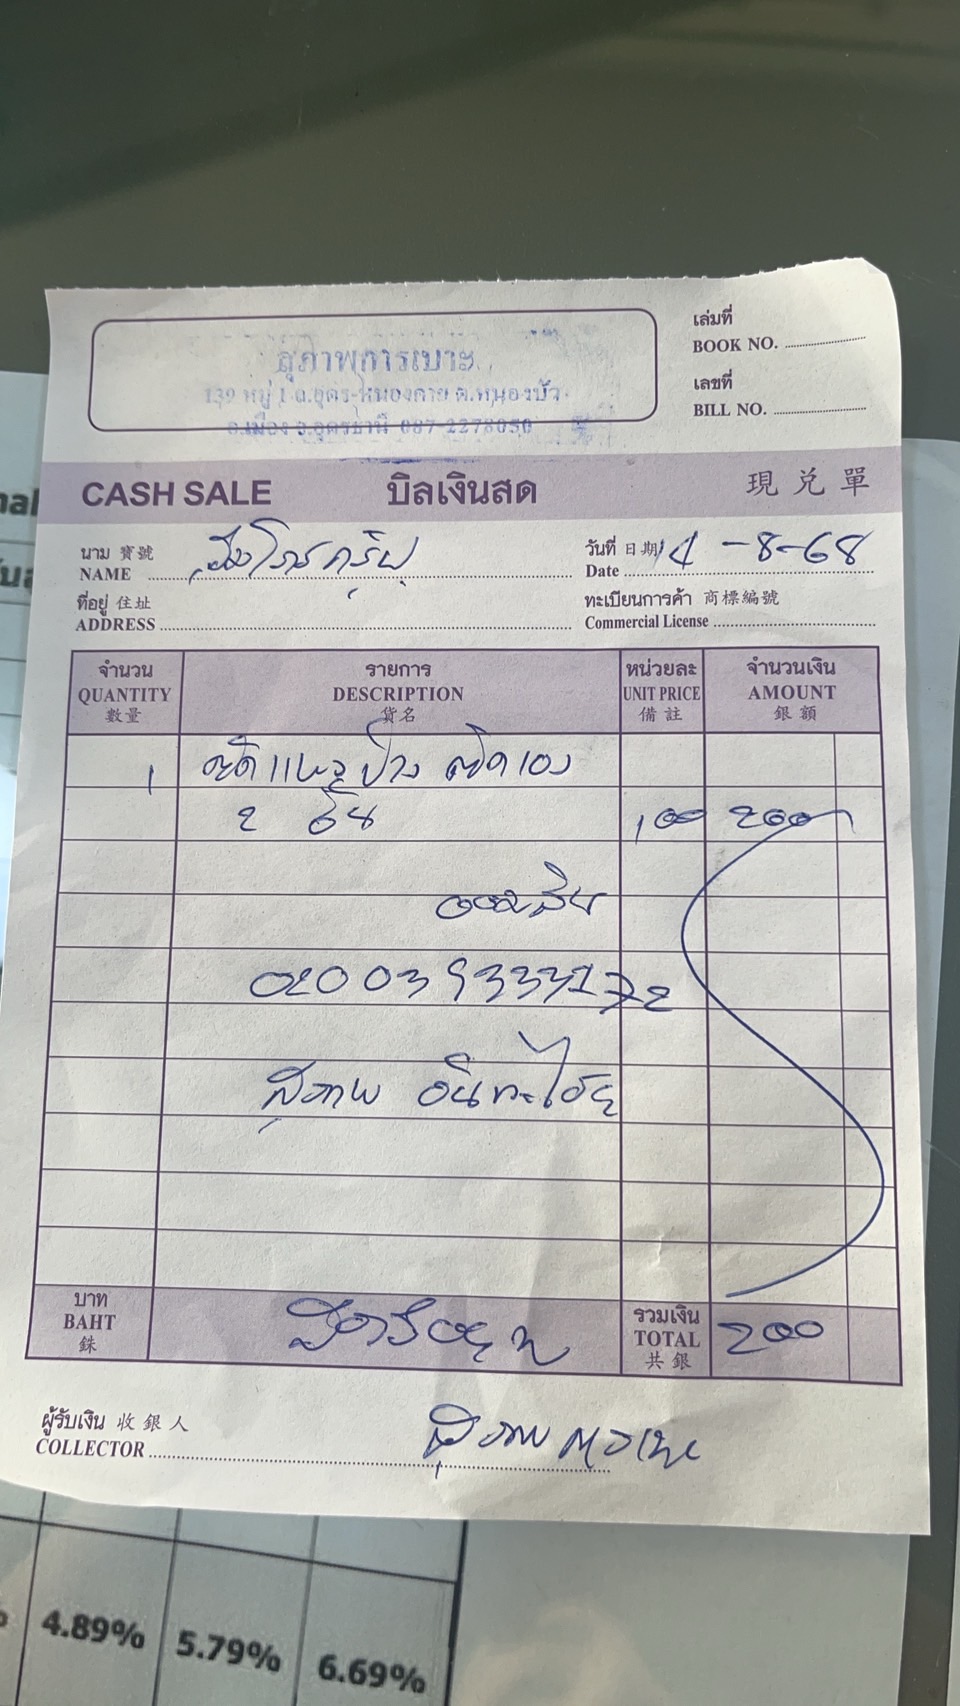 เล่มที่
BOOK NO.
เลขที่
BILL NO.
สุภาพการเบาะ
139 หมู่ 1 ถ.อุดร-หนองคาย ต.หนองบัว
อ.เมือง จ.อุดรธานี 087-2278050
CASH SALE บิลเงินสด 現兌單
นาม 寶號
NAME
วันที่ 日期 14-8-68
Date
ที่อยู่ 住址
ADDRESS
ทะเบียนการค้า 商標編號
Commercial License
จำนวน รายการ หน่วยละ จำนวนเงิน
QUANTITY DESCRIPTION UNIT PRICE AMOUNT
數量 貨名 備註 銀額
1
2 100 200
ออมสิน
020039333172
สุภาพ
บาท
BAHT
銖
รวมเงิน
TOTAL 200
共銀
ผู้รับเงิน 收銀人
COLLECTOR สุภาพ
4.89% 5.79% 6.69%